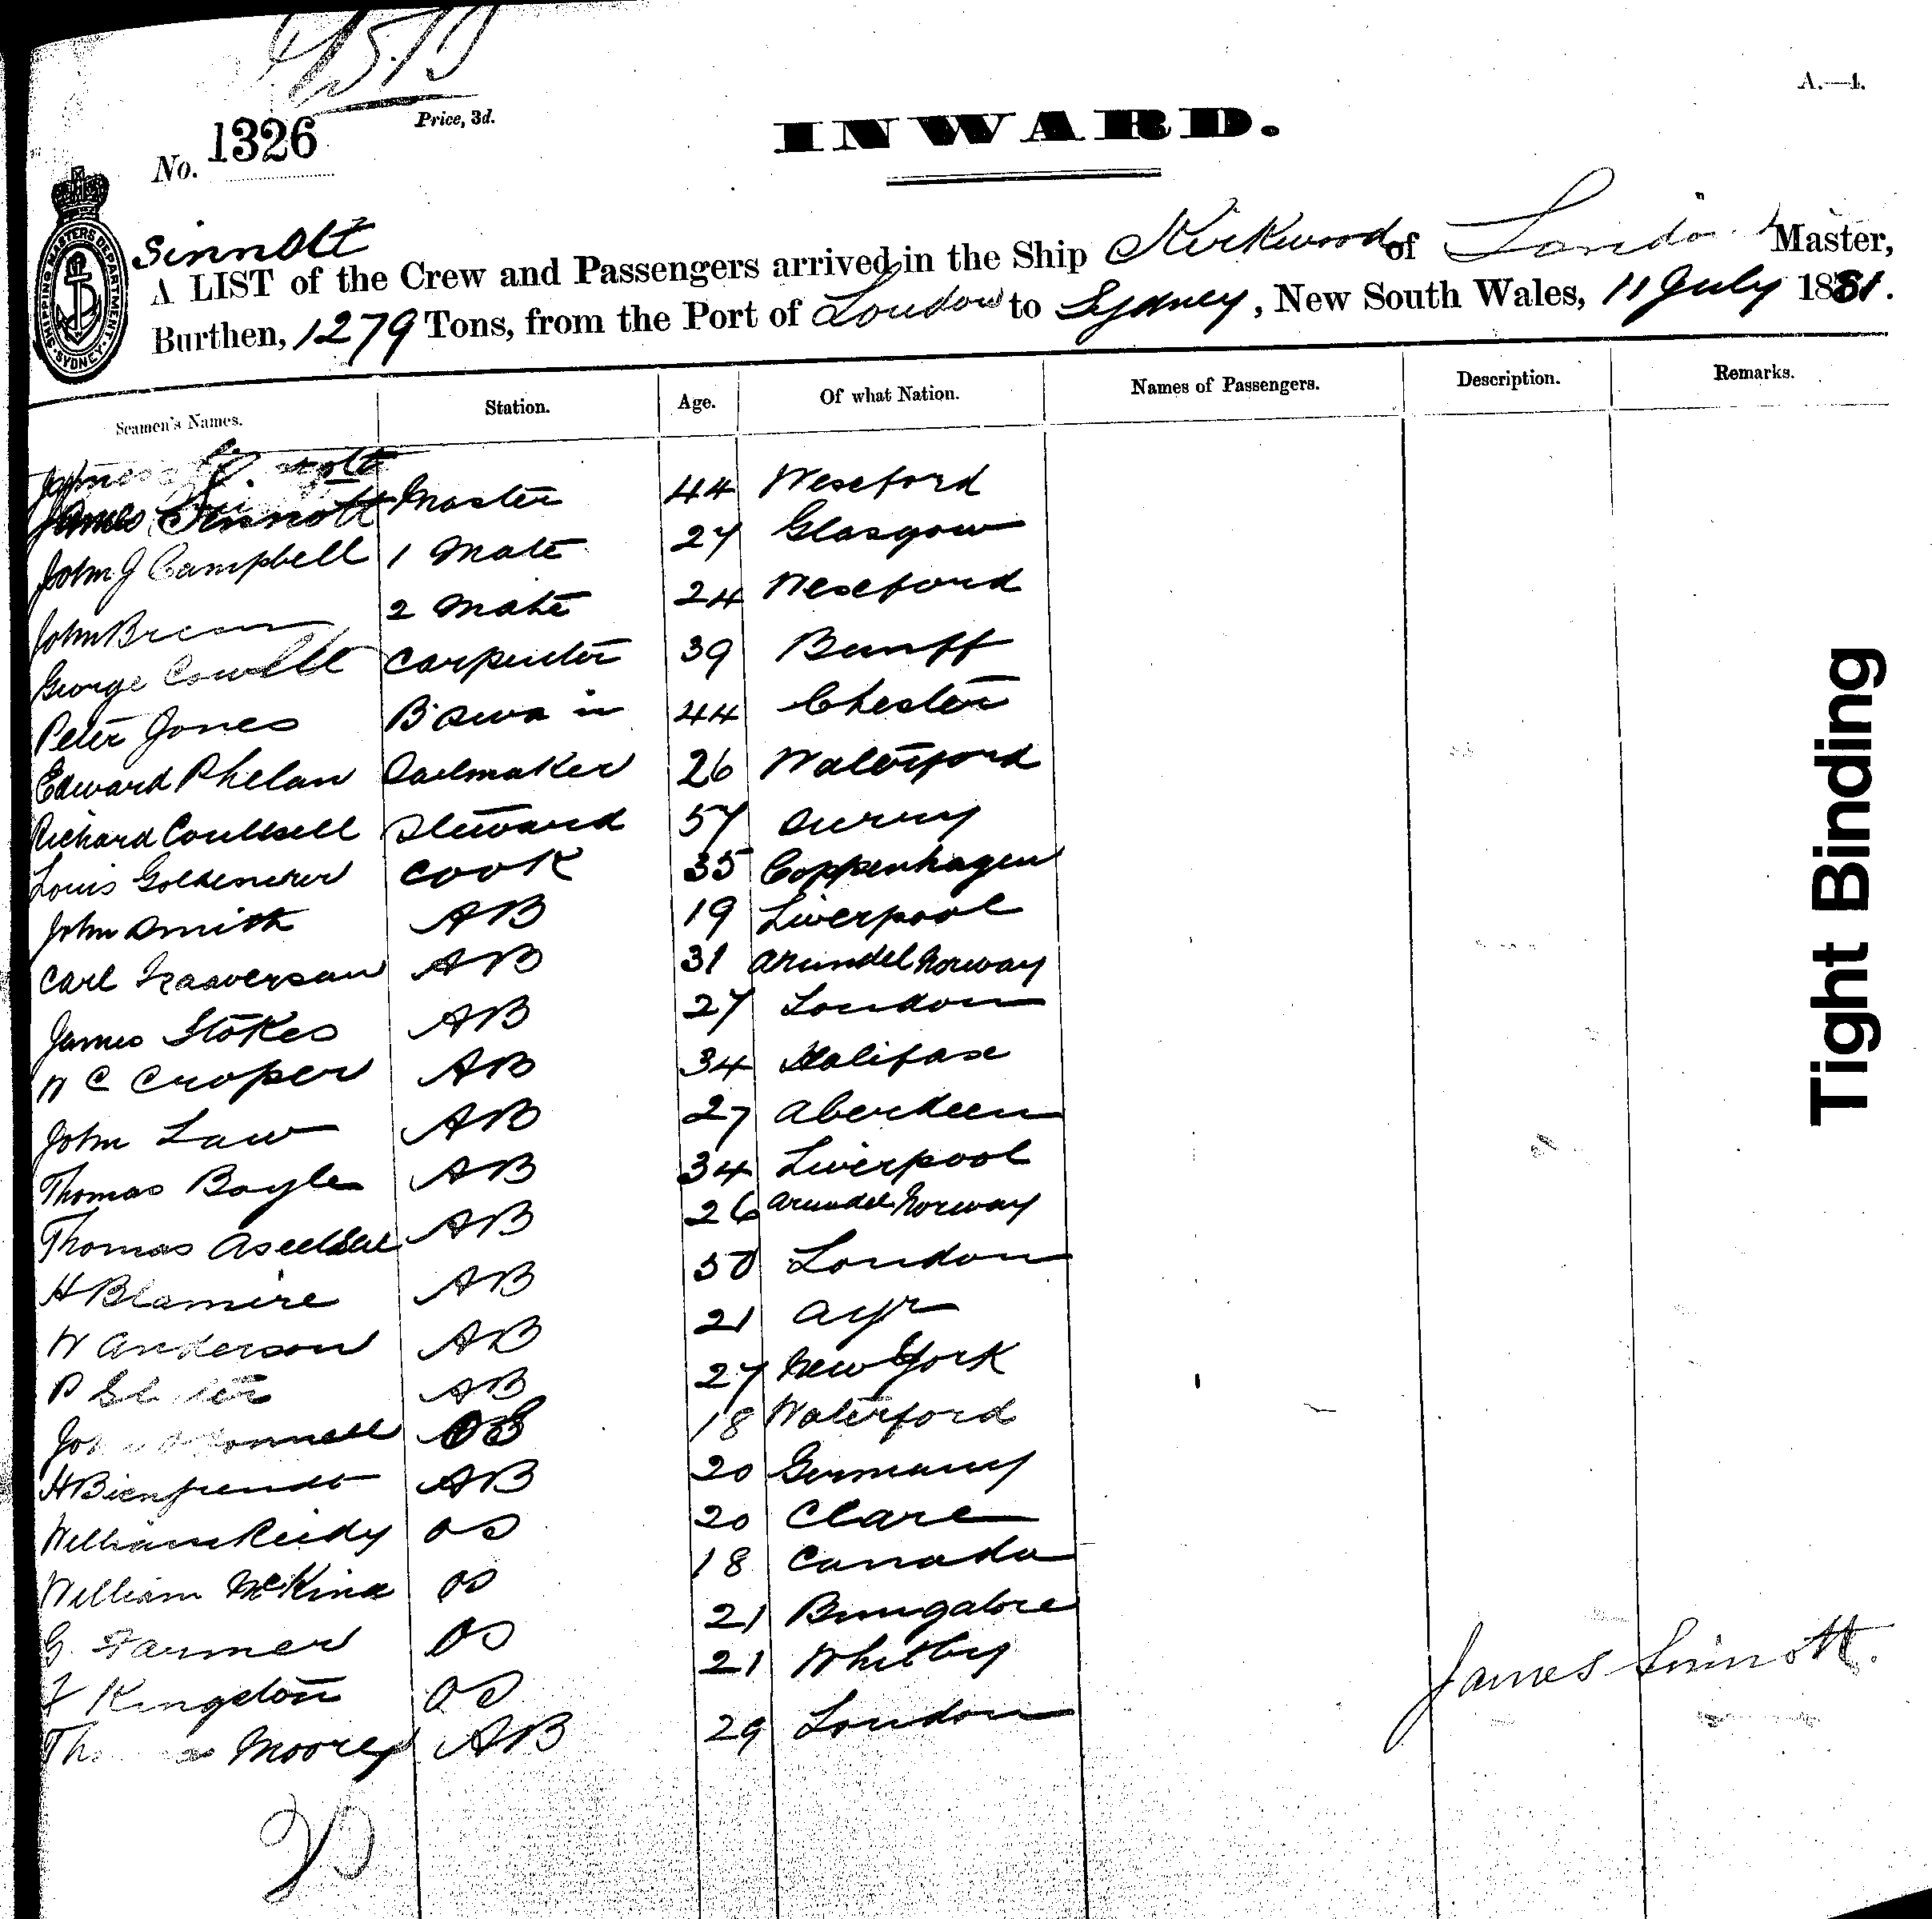 A.—4.
Price, 3d.
No. 1326
INWARD.
SHIPPING MASTERS DEPARTMENT SYDNEY
Sinnott
A LIST of the Crew and Passengers arrived in the Ship Kirkwood of London Master,
Burthen, 1279 Tons, from the Port of London to Sydney, New South Wales, 11 July 1881.
Seamen's Names. Station. Age. Of what Nation. Names of Passengers. Description. Remarks.
James Sinnott Master 44 Wexford
John J Campbell 1 Mate 27 Glasgow
John 2 Mate 24 Wexford
George Carpenter 39 Banff
Peter Jones B'swain 44 Chester
Edward Phelan Sailmaker 26 Waterford
Richard Steward 57 Surrey
Louis Cook 35 Coppenhagen
John Smith AB 19 Liverpool
Carl AB 31 Arundel Norway
James Stokes AB 27 London
W C Croper AB 34 Halifax
John Law AB 27 Aberdeen
Thomas Boyle AB 34 Liverpool
Thomas AB 26 Arundel Norway
H Blamire AB 30 London
W Anderson AB 21 Ayr
P AB 27 New York
OS 18 Waterford
H AB 20 Germany
William Reidy OS 20 Clare
William OS 18 Canada
G. Farmer OS 21 Bungalore
F Kingston OS 21 Whitby
Moore AB 29 London
James Sinnott.
Tight Binding